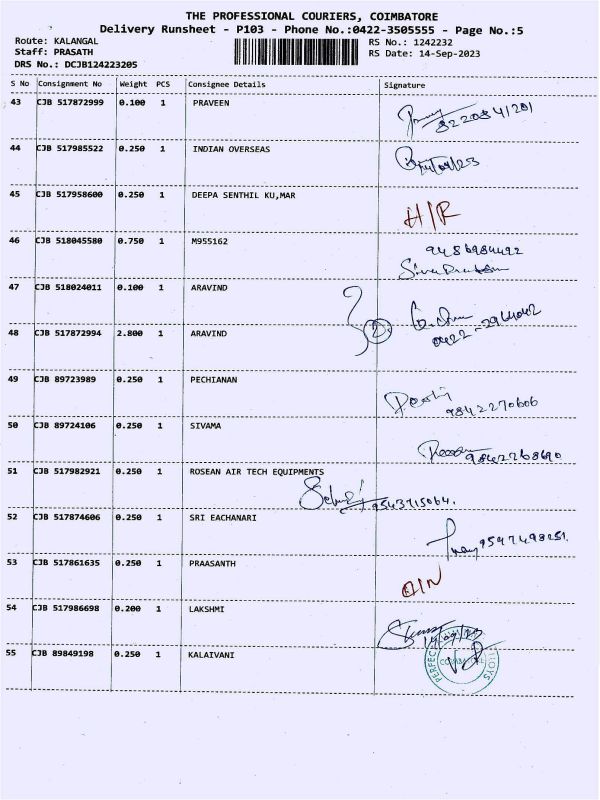 THE PROFESSIONAL COURIERS, COIMBATORE
Delivery Runsheet - P103 - Phone No.:0422-3505555 - Page No.:5
Route: KALANGAL RS No.: 1242232
Staff: PRASATH RS Date: 14-Sep-2023
DRS No.: DCJB124223205
S No Consignment No Weight PCS Consignee Details Signature
43 CJB 517872999 0.100 1 PRAVEEN
44 CJB 517985522 0.250 1 INDIAN OVERSEAS
45 CJB 517958600 0.250 1 DEEPA SENTHIL KU,MAR
H/R
46 CJB 518045580 0.750 1 M955162
47 CJB 518024011 0.100 1 ARAVIND
2
0422-2964042
48 CJB 517872994 2.800 1 ARAVIND
49 CJB 89723989 0.250 1 PECHIANAN
9842270606
50 CJB 89724106 0.250 1 SIVAMA
9842268690
51 CJB 517982921 0.250 1 ROSEAN AIR TECH EQUIPMENTS
9543715064.
52 CJB 517874606 0.250 1 SRI EACHANARI
53 CJB 517861635 0.250 1 PRAASANTH
54 CJB 517986698 0.200 1 LAKSHMI
55 CJB 89849198 0.250 1 KALAIVANI